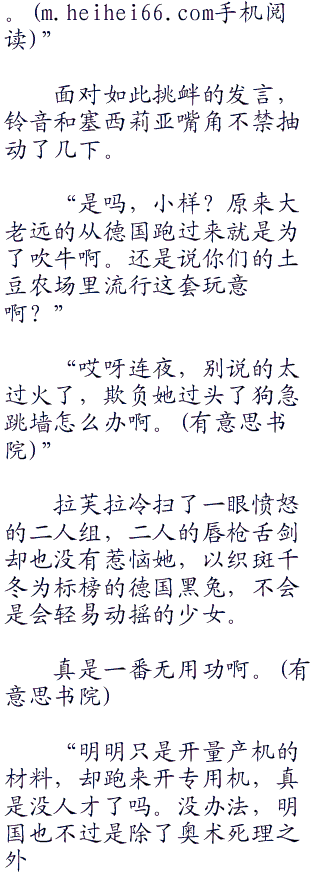 。(m.heihei66.com手机阅
读)”
面对如此挑衅的发言，
铃音和塞西莉亚嘴角不禁抽
动了几下。
“是吗，小样？原来大
老远的从德国跑过来就是为
了吹牛啊。还是说你们的土
豆农场里流行这套玩意
啊？”
“哎呀连夜，别说的太
过火了，欺负她过头了狗急
跳墙怎么办啊。(有意思书
院)”
拉芙拉冷扫了一眼愤怒
的二人组，二人的唇枪舌剑
却也没有惹恼她，以织斑千
冬为标榜的德国黑兔，不会
是会轻易动摇的少女。
真是一番无用功啊。(有
意思书院)
“明明只是开量产机的
材料，却跑来开专用机，真
是没人才了吗。没办法，明
国也不过是除了奥术死理之
外